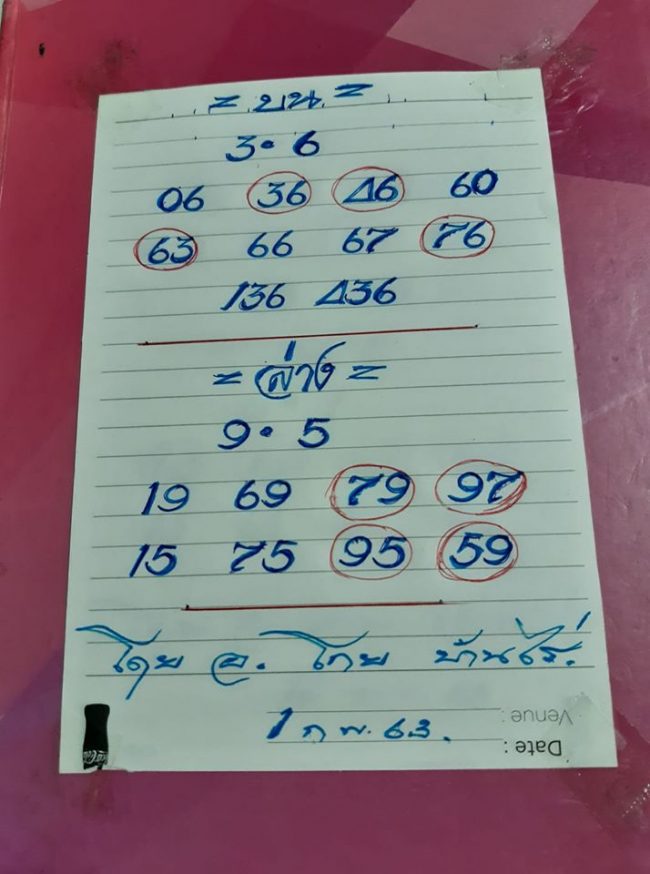 = บน =
3 • 6
06 36 46 60
63 66 67 76
136 436
= ล่าง =
9 • 5
19 69 79 97
15 75 95 59
โดย อ. โกย บ้านไร่.
1 ก พ. 63.
Venue :
Date :